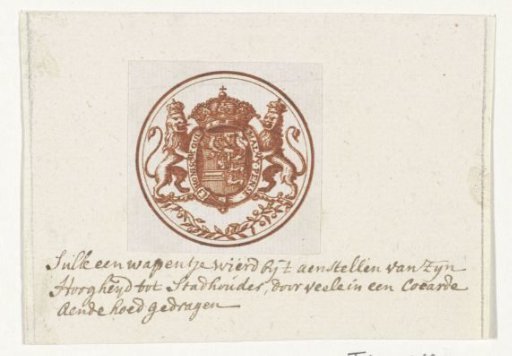 HONI SOIT QUI MAL Y PENSE
Sulk een wapentje wierd bij 't aenstellen van Zyn
Hoogheyd tot Stadhouder, door veele in een Cocarde
aende hoed gedragen